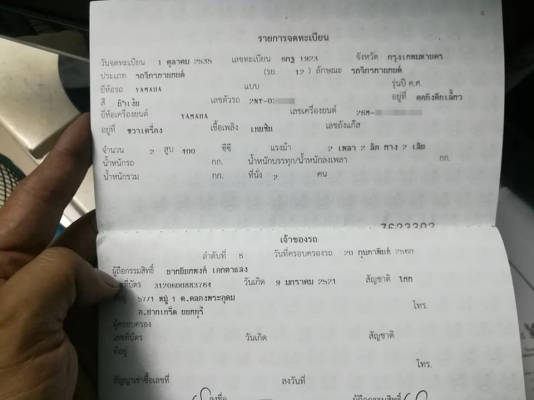 รายการจดทะเบียน
วันจดทะเบียน 1 ตุลาคม 2535 เลขทะเบียน 1923 จังหวัด กรุงเทพมหานคร
ประเภท รถจักรยานยนต์ (รย. 12 ) ลักษณะ รถจักรยานยนต์
ยี่ห้อรถ YAMAHA แบบ รุ่นปี ค.ศ.
สี เลขตัวรถ 2NT-0 อยู่ที่
ยี่ห้อเครื่องยนต์ YAMAHA เลขเครื่องยนต์
อยู่ที่ เชื้อเพลิง เบนซิน เลขถังแก๊ส
จำนวน 2 สูบ 400 ซีซี แรงม้า 2 เพลา 2 ล้อ ยาง 2 เส้น
น้ำหนักรถ กก. น้ำหนักบรรทุก/น้ำหนักลงเพลา กก.
น้ำหนักรวม กก. ที่นั่ง 2 คน
7623302
เจ้าของรถ
ลำดับที่ วันที่ครอบครองรถ 20 กุมภาพันธ์ 2560
ผู้ถือกรรมสิทธิ์
เลขที่บัตร 3120600883764 วันเกิด 9 มกราคม 2521 สัญชาติ ไทย
57/1 หมู่ 1 ต.คลองพระอุดม โทร.
อ.ปากเกร็ด นนทบุรี
ผู้ครอบครอง
เลขที่บัตร วันเกิด สัญชาติ
ที่อยู่ โทร.
สัญญาเช่าซื้อเลขที่ ลงวันที่
ลงชื่อ ผู้ถือกรรมสิทธิ์